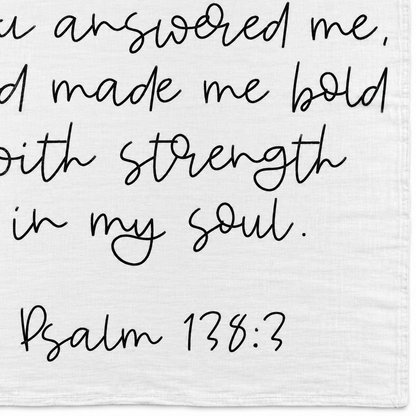 u answered me,
d made me bold
ith strength
in my soul.
Psalm 138:3